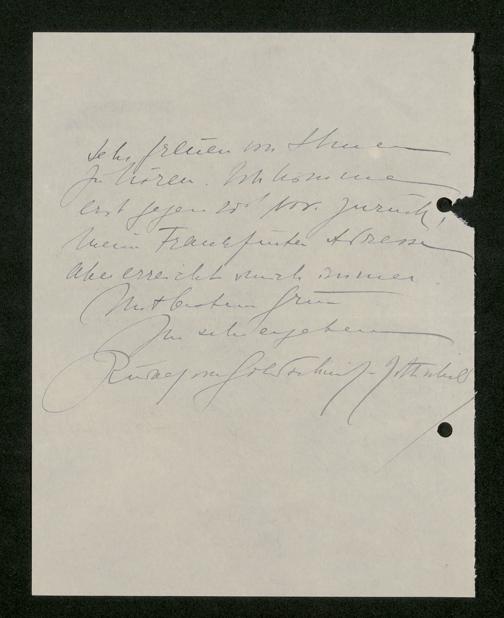 sehr freuen von Ihnen
zu hören. Ich komme
erst gegen 20t Nov. zurück,
meine Frankfurter Adresse
aber erreicht mich immer
Mit bestem Gruss
Ihr sehr ergebener
Rudolf von Goldschmidt-Rothschild